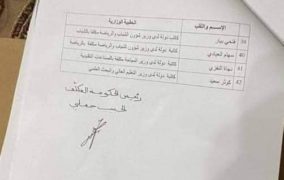 الإسم واللقب الحقيبة الوزارية
39 فتحي بيار كاتب دولة لدى وزير شؤون الشباب والرياضة مكلف بالشباب
40 سهام العيادي كاتبة دولة لدى وزير شؤون الشباب والرياضة مكلفة بالرياضة
41 سهاة كاتبة دولة لدى وزير السياحة مكلفة بالصناعات التقليدية
42 كوثر سعيد كاتبة دولة لدى وزير التعليم العالي والبحث العلمي
رئيس الحكومة المكلف
الحبيب جملي